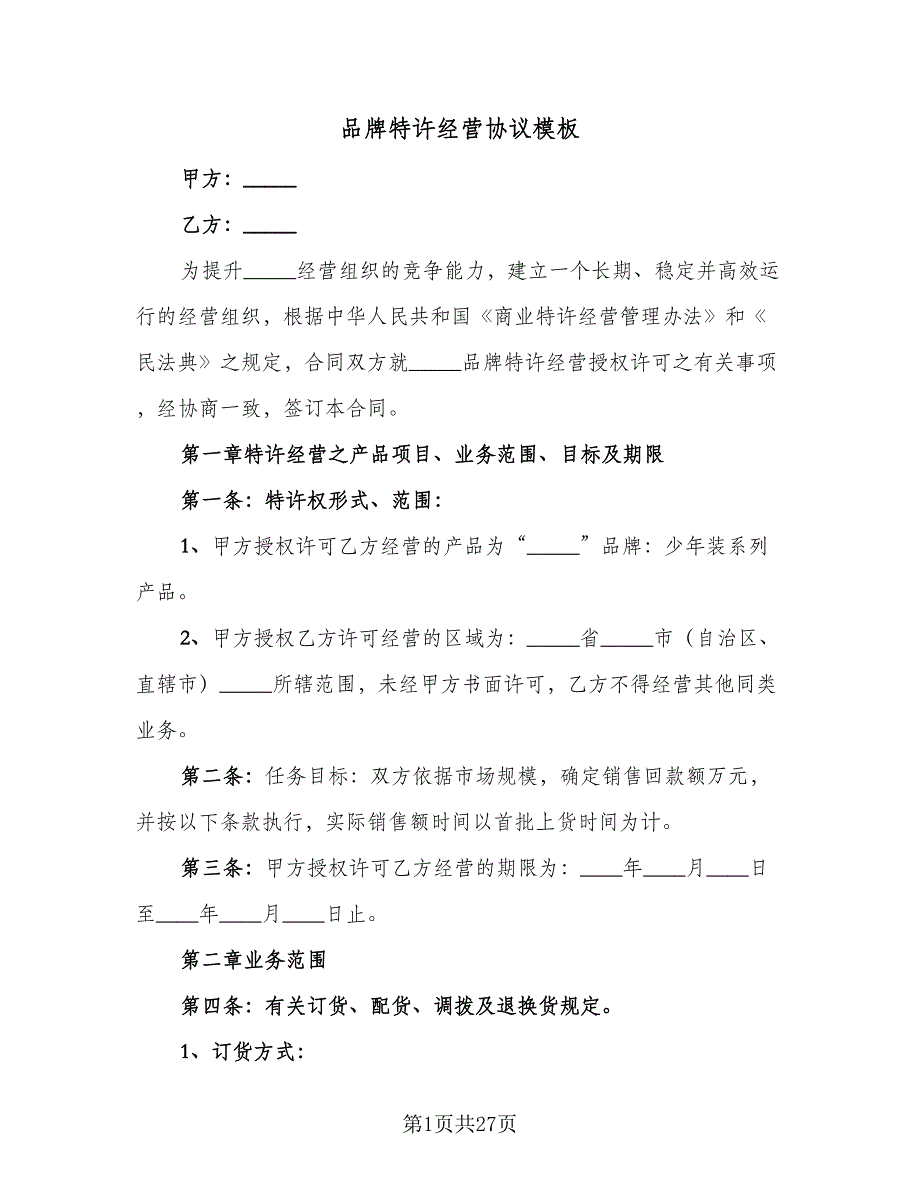 品牌特许经营协议模板
甲方：_____
乙方：_____
为提升_____经营组织的竞争能力，建立一个长期、稳定并高效运
行的经营组织，根据中华人民共和国《商业特许经营管理办法》和《
民法典》之规定，合同双方就_____品牌特许经营授权许可之有关事项
，经协商一致，签订本合同。
第一章特许经营之产品项目、业务范围、目标及期限
第一条：特许权形式、范围：
1、甲方授权许可乙方经营的产品为“_____”品牌：少年装系列
产品。
2、甲方授权乙方许可经营的区域为：_____省_____市（自治区、
直辖市）_____所辖范围，未经甲方书面许可，乙方不得经营其他同类
业务。
第二条：任务目标：双方依据市场规模，确定销售回款额万元，
并按以下条款执行，实际销售额时间以首批上货时间为计。
第三条：甲方授权许可乙方经营的期限为：____年____月____日
至____年____月____日止。
第二章业务范围
第四条：有关订货、配货、调拨及退换货规定。
1、订货方式：
第1页共27页